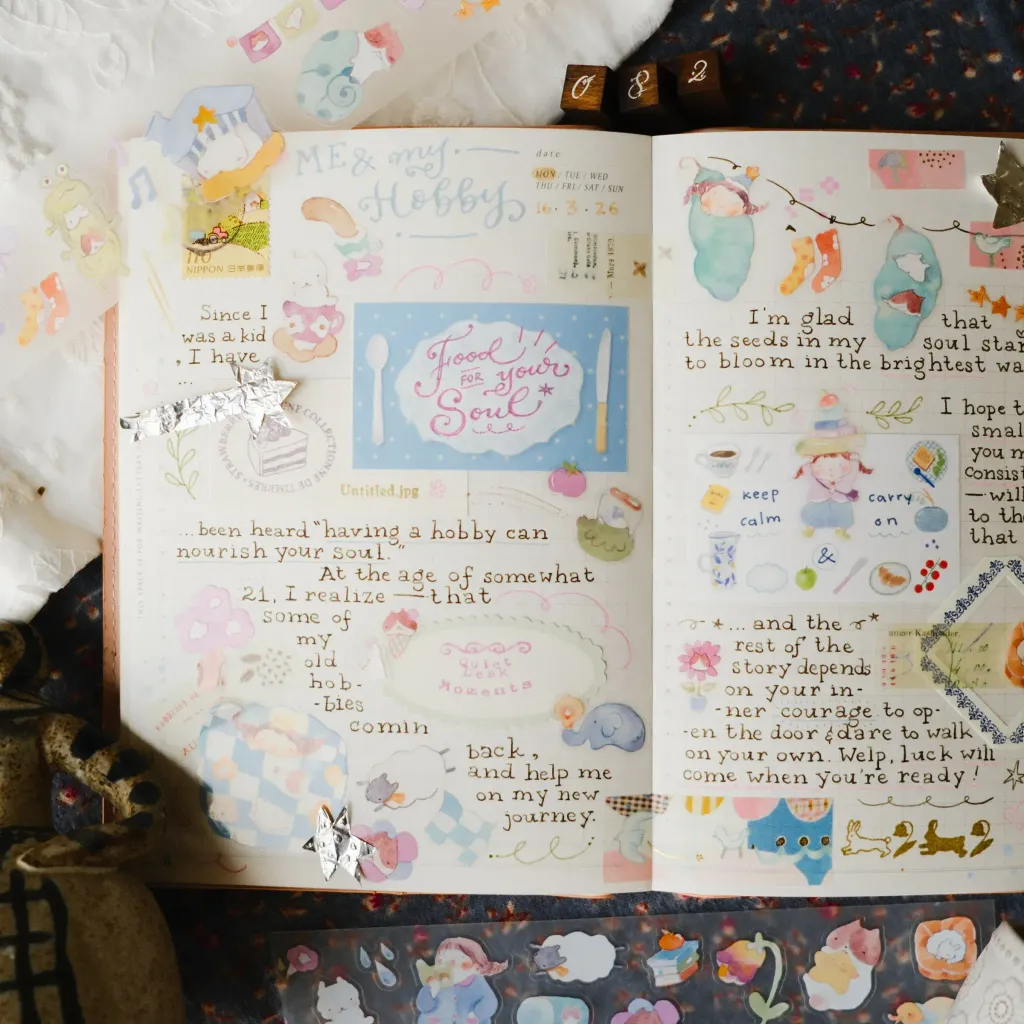 0 8 2
ME & my
Hobby
date
MON / TUE / WED
THU / FRI / SAT / SUN
16 · 3 · 26
110
NIPPON 日本郵便
Since I
was a kid
, I have
...
Food
FOR your
Soul
Untitled.jpg
...been heard "having a hobby can
nourish your soul."
At the age of somewhat
21, I realize — that
some of
my
old
hob-
-bies
comin
back,
and help me
on my new
journey.
Quiet
Moments
I'm glad that
the seeds in my soul star
to bloom in the brightest wa
I hope t
smal
you m
consist
— will
to the
that
keep
calm
carry
on
&
*... and the *
rest of the
story depends
on your in-
-ner courage to op-
-en the door & dare to walk
on your own. Welp, luck will
come when you're ready!